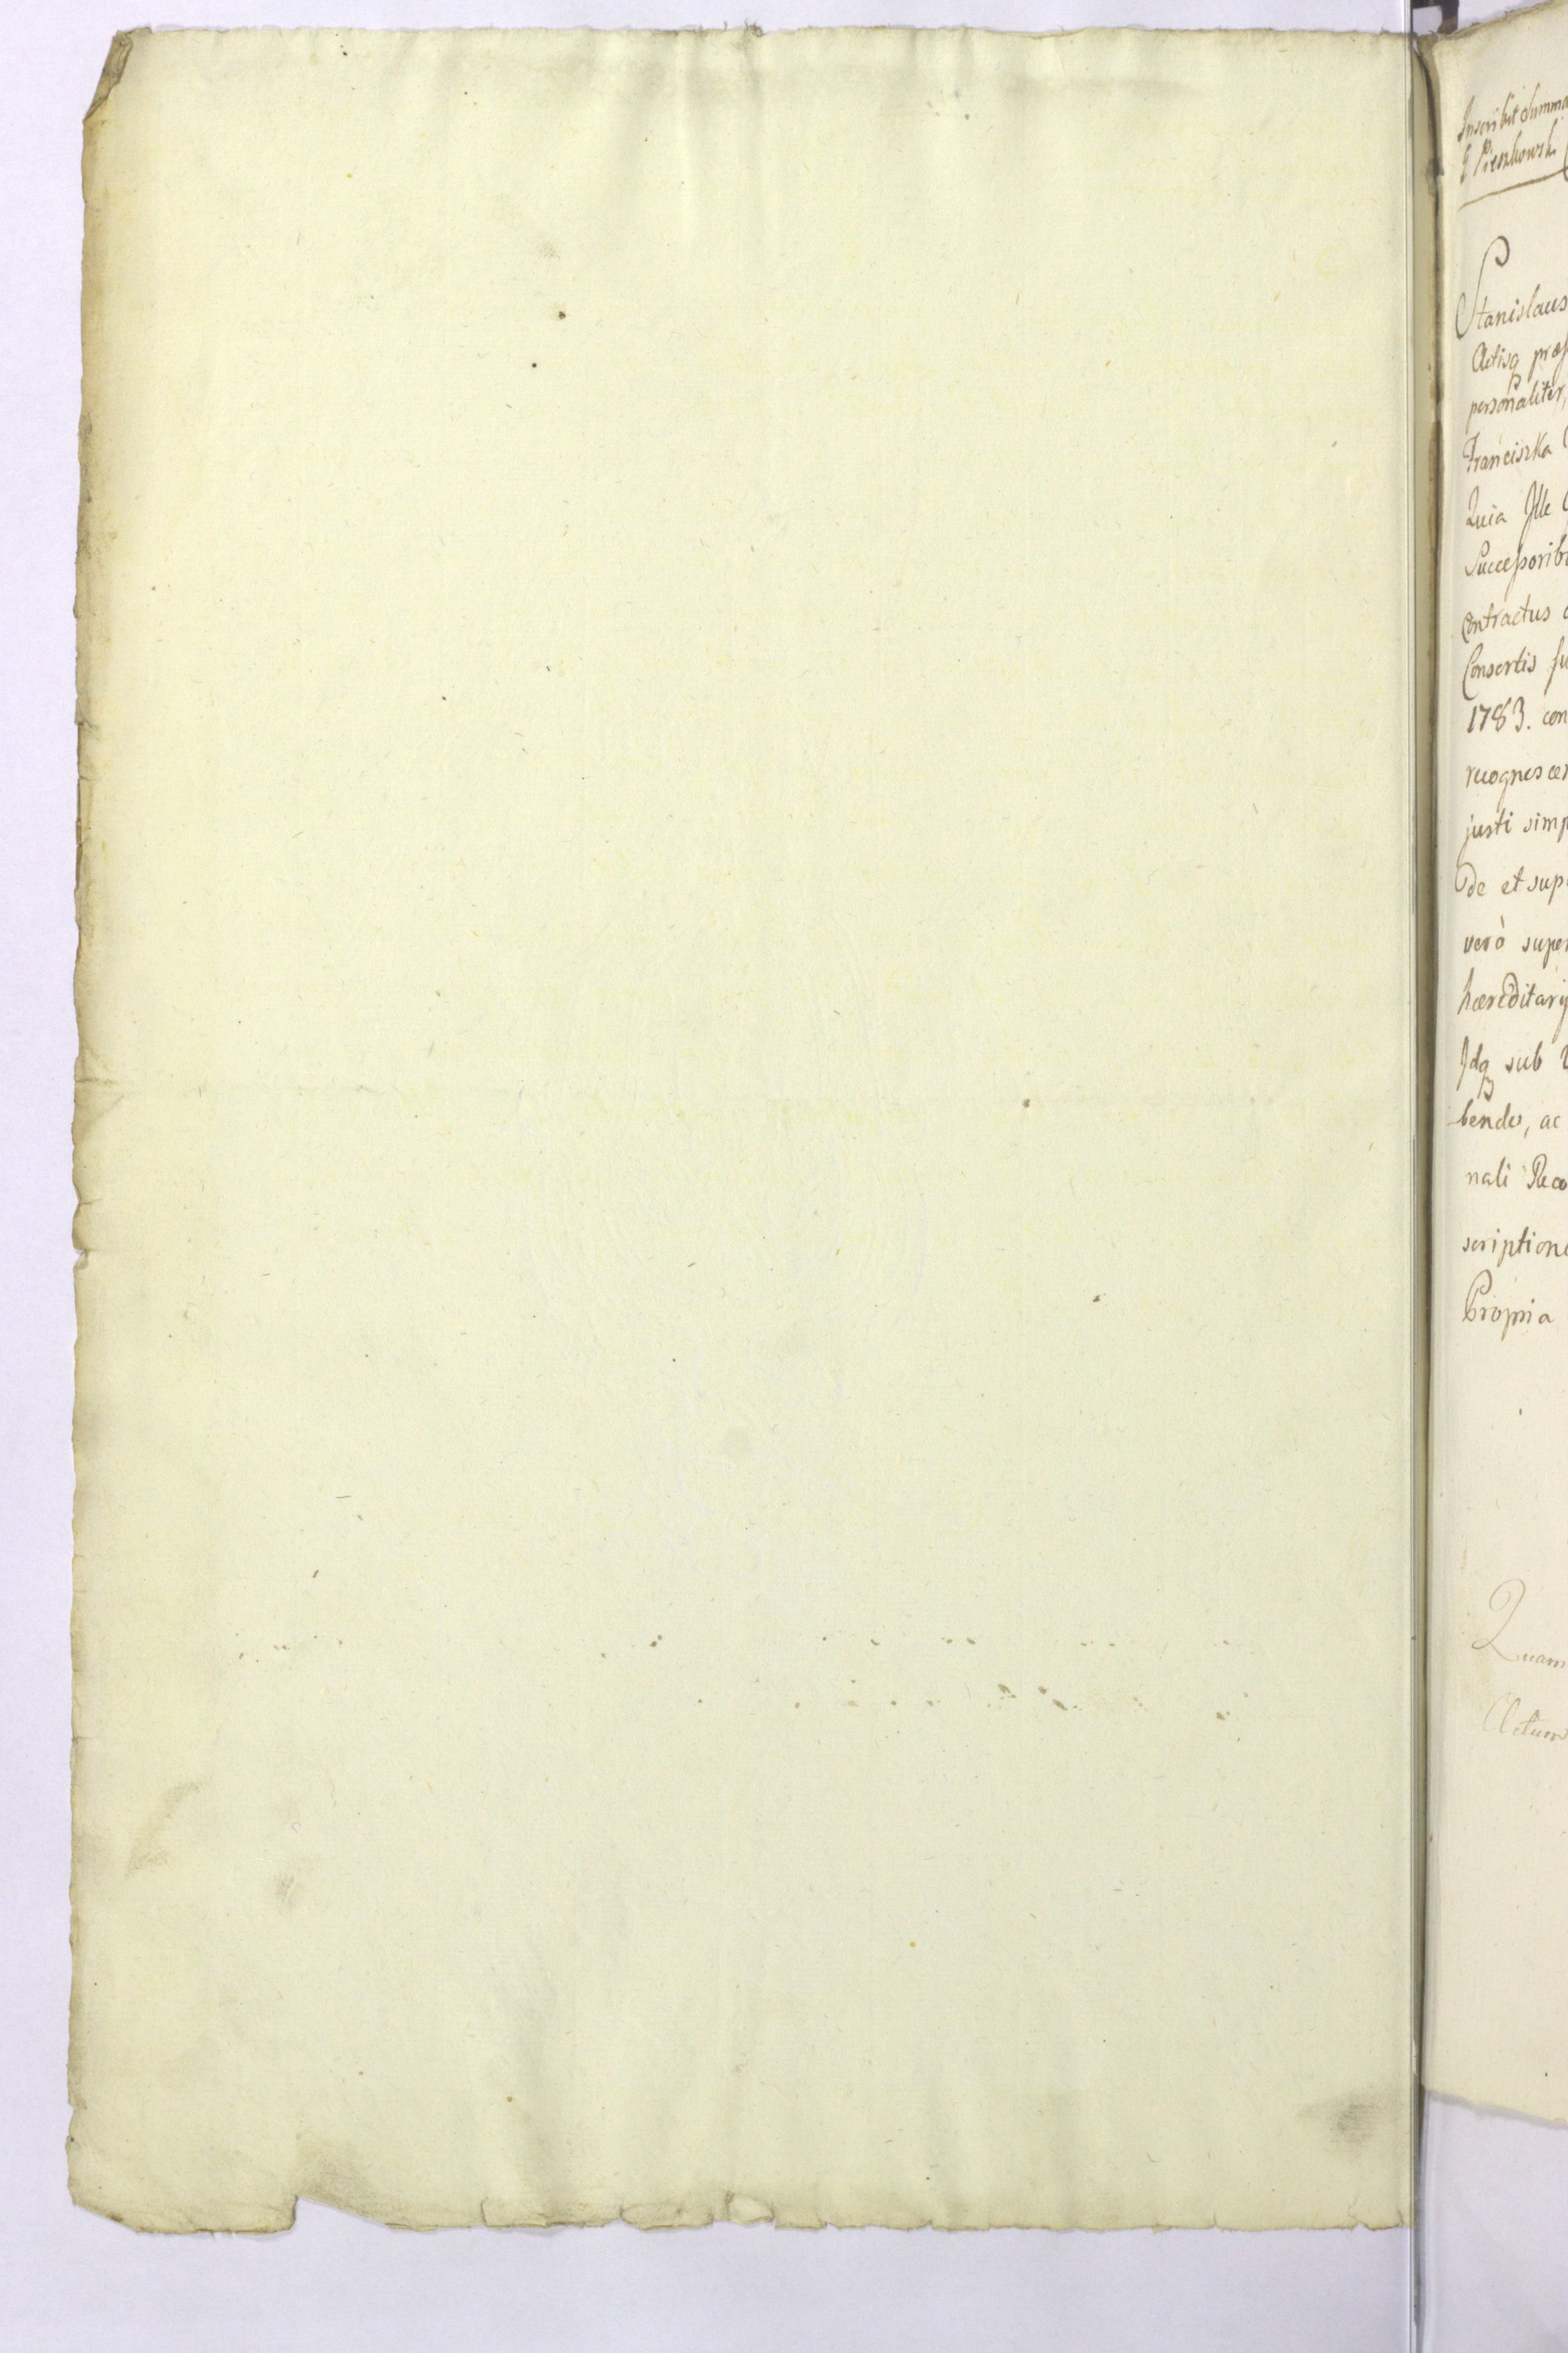 Inscribit summa
Stanislaus
Actisq præ
personaliter,
Franciszka
Quia Ille
Successorib
Contractus
Consortis su
1783. con
recognoscen
justi simp
De et sup
verò super
hæreditarij
Idq sub
bendo, ac
nali Reco
scription
Propria
Quam
Actum